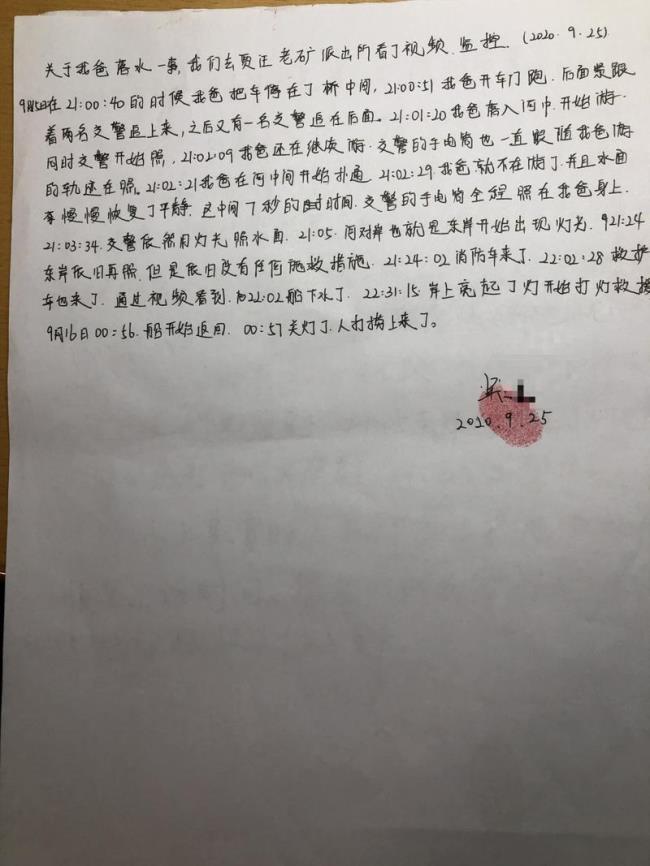 关于我爸落水一事,我们去贾汪老矿派出所看了视频监控.(2020.9.25)
9月15日在21:00:40的时候我爸把车停在了桥中间,21:00:51我爸开车门跑.后面紧跟
着两名交警追上来,之后又有一名交警追在后面。21:01:20我爸落入河中.开始游.
同时交警开始照,21:02:09我爸还在继续游.交警的手电筒也一直跟随我爸游
的轨迹在照.21:02:21我爸在河中间开始扑通.21:02:29.我爸就不在游了.并且水面
慢慢恢复了平静.这中间7秒的时间.交警的手电筒全程照在我爸身上.
21:03:34.交警依然用灯光照水面.21:05.河对岸也就是东岸开始出现灯光.21:24
东岸依旧再照.但是依旧没有任何施救措施.21:24:02消防车来了.22:02:28救护
车也来了.通过视频看到.22:02船下水了.22:31:15岸上亮起了灯开始打灯救援
9月16日00:56.船开始返回.00:57关灯了.人打捞上来了。
2020.9.25